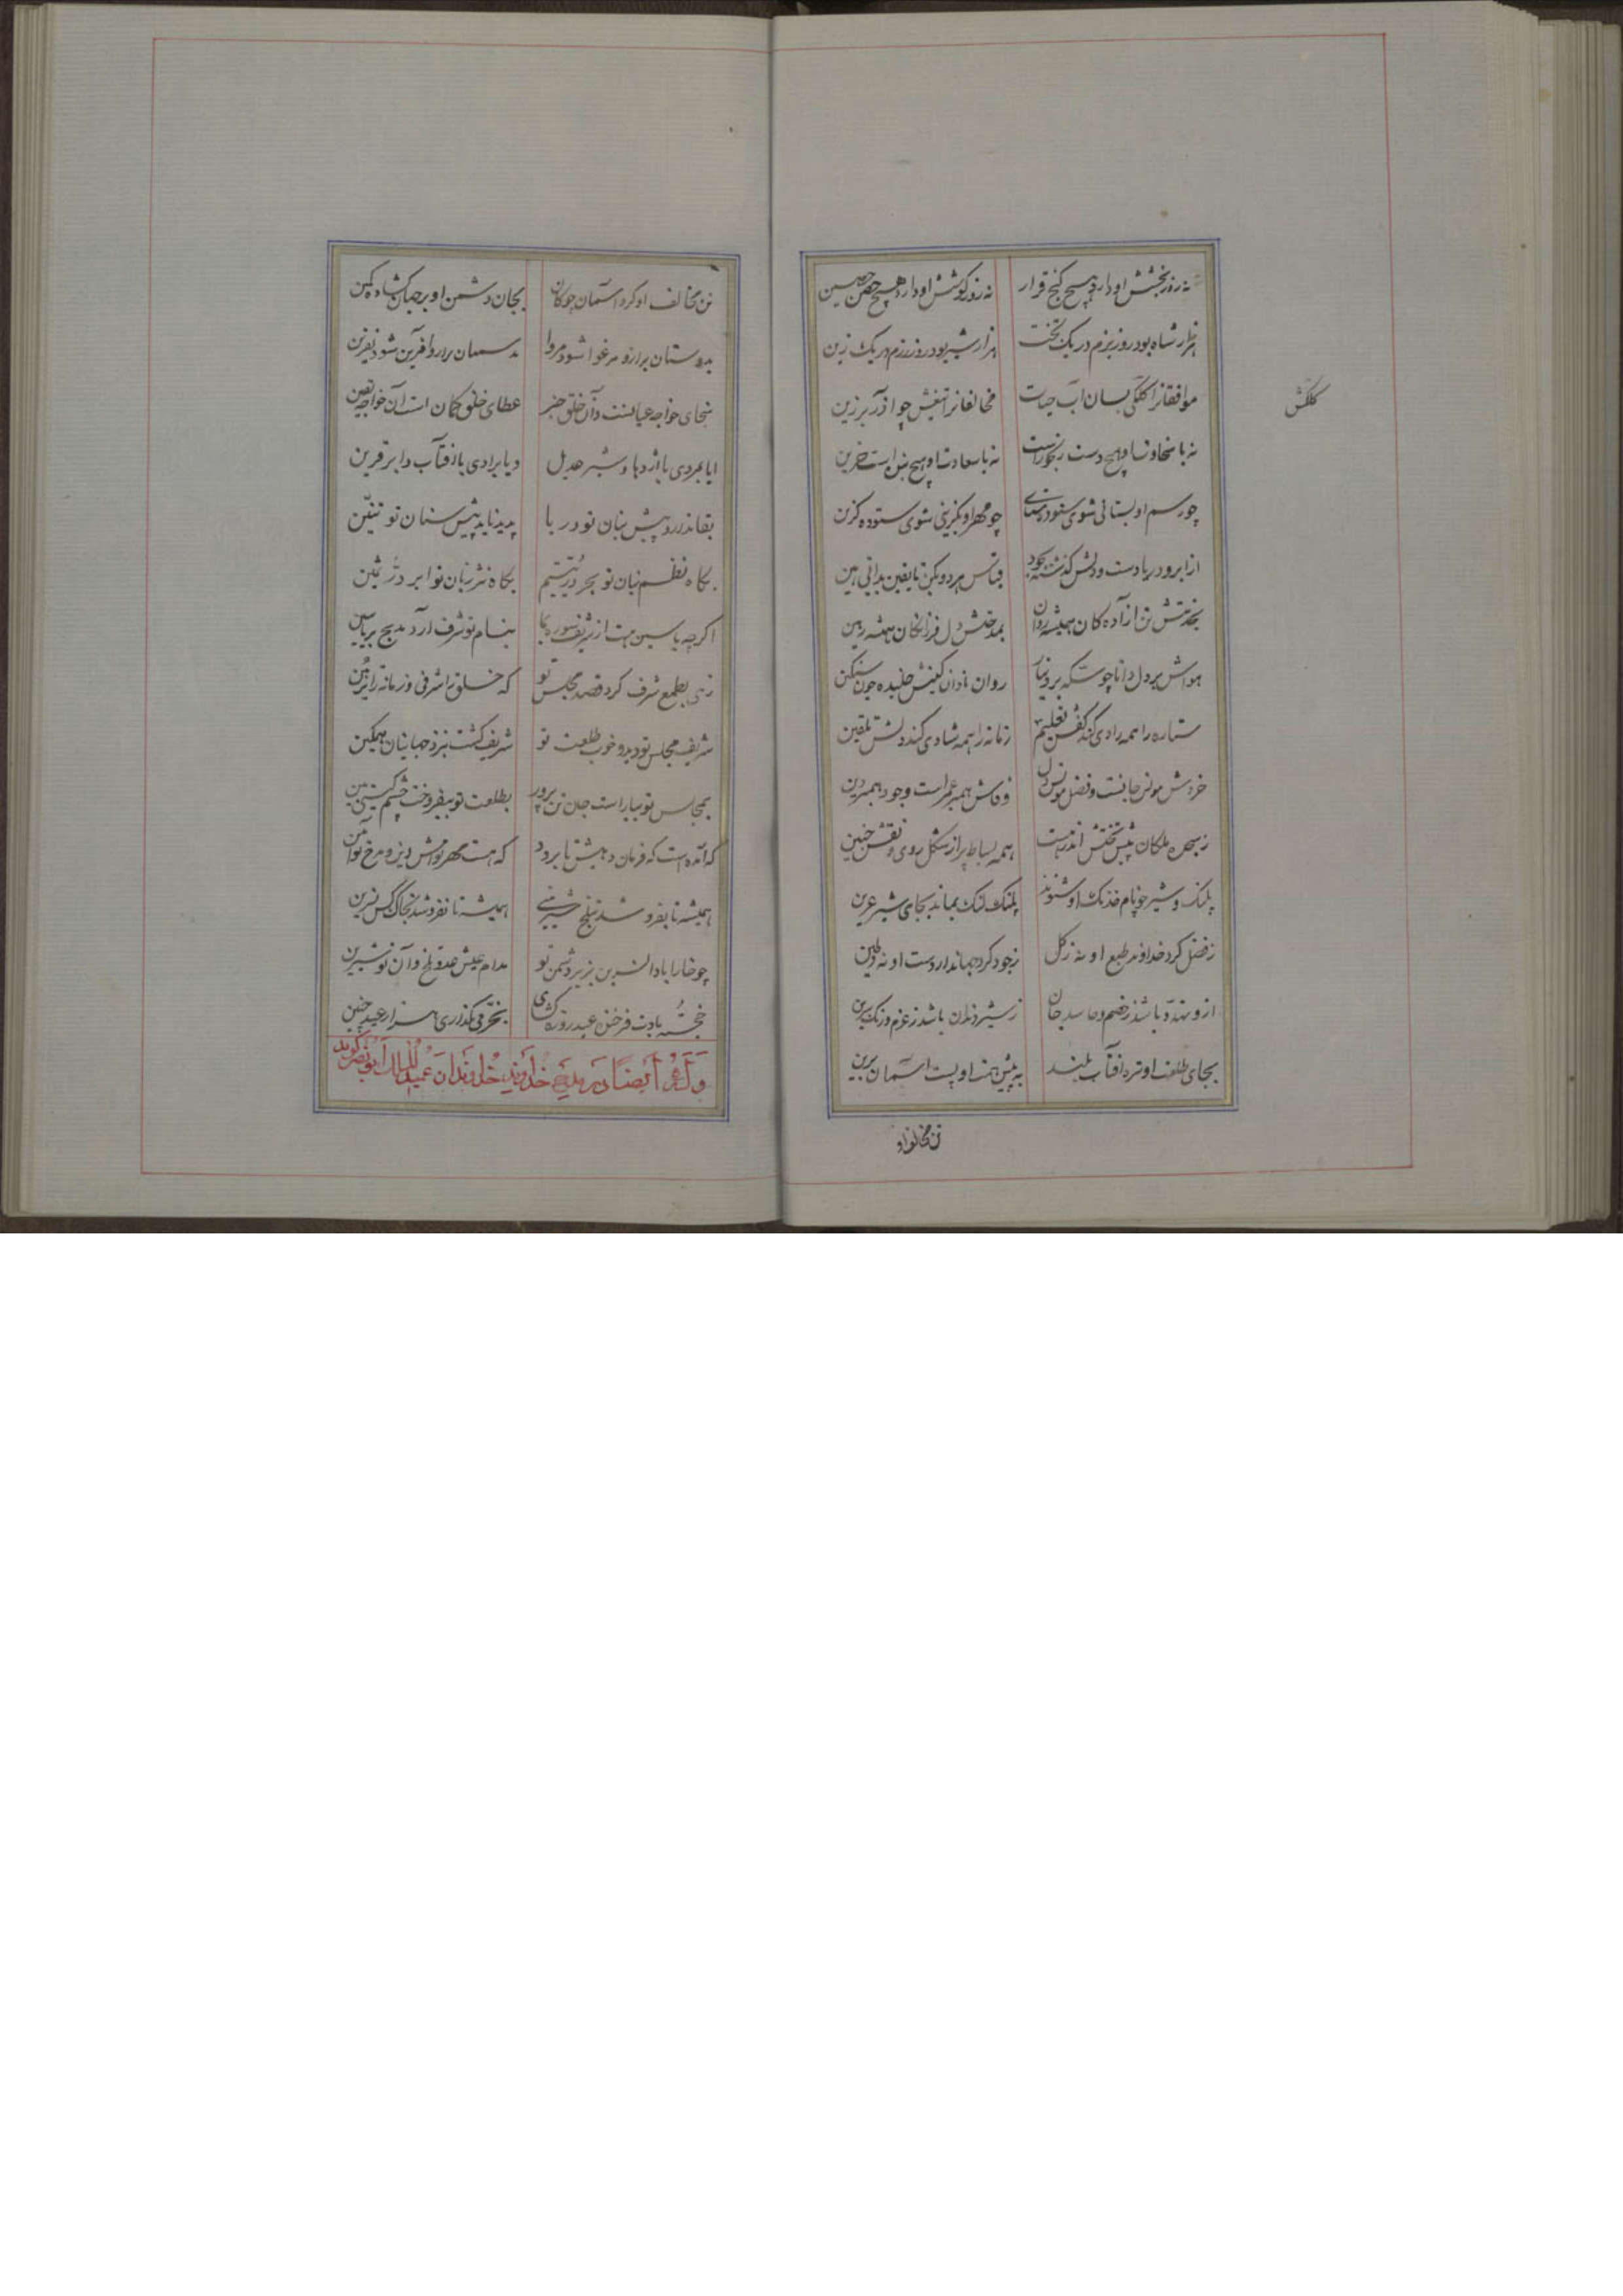 نه روز بخشش او دارد هیچ گنج قرار نه روز کوشش او دارد هیچ حصن حصین
هزار شاه بود روز بزم در یک تخت هزار شیر بود روز رزم در یک زین
موافقانرا کلکی بسان آب حیات مخالفانرا تیغش چو آذر برزین
کلکش
نه با سخاوت او هیچ دست رنجورست نه با سعادت او هیچ تن است حزین
چو رسم او بستانی شوی ستوده چو مهر او بگزینی شوی ستوده گزین
از ابر و دریا دست و دلش گذشته بجود قیاس هر دو بکن تا یقین بدانی هین
بخدمتش تن آزادگان همیشه روان بمدحتش دل فرزانگان همیشه رهین
هواش بر دل دانا چو سکه بر دینار روان نادان کینش خلیده چون سکین
ستاره را همه رادی کند کفش تعلیم زمانه را همه شادی کند دلش تلقین
خردش مونس جانست و فضل مونس دل وفاش همبر عمر است وجود همبر دین
ز سجده ملکان پیش تختش اندر هست همه بساط پر از شکل روی و نقش جبین
پلنگ و شیر چو نام خدنگ او شنوند پلنگ لنگ بماند بجای شیر عرین
ز فضل کرد خداوند طبع او نه ز گل ز جود کرد جهاندار دست او نه ز طین
ازو نهد و باشد ز خصم و حاسد جان ز شیر دندان باشد ز غرم و رنگ سرین
بجای طلعت او تیره آفتاب بلند به پیش همت او پست آسمان برین
تن مخالف او
تن مخالف او کرد آسمان چو کمان بجان دشمن او بر جهان گشاده کمین
بدوستان بر ازو مرغوا شود مروا بدشمنان بر ازو آفرین شود نفرین
سخای خواجه عیانست و آن خلق خبر عطای خلق گمان است و آن خواجه یقین
ایا بمردی با اژدها و شیر عدیل و یا برادی با آفتاب و ابر قرین
بقا ندارد پیش بنان تو دریا پدید ناید پیش سنان تو تنین
بگاه نظم بنان تو بحر در یتیم بگاه نثر زبان تو ابر در ثمین
اگر چه یاسین هست از شریف سوره بنام تو شرف آرد مدیح بر یاسین
زمی بطمع شرف کرد قصد مجلس تو که خلق را شرفی و زمانه را تزیین
شریف مجلس تو دید و خوب طلعت تو شریف گشت بنزد جهانیان همگین
بمجلس تو بیاراست جان تن پرور بطلعت تو بیفروخت چشم گیتی بین
که آمده است که فرمان دهیش تا برود که هست مهر تو امش دیز و مدح تو آمین
همیشه تا نفروشد بتلخ شیرینی همیشه تا نفروشد بخاک کس نسرین
چو خار باد نسرین بزیر دشمن تو مدام عیش عدو تلخ و آن تو شیرین
خجسته بادت فرخنده عید روزه گشای بخرمی بگذاری هزار عید چنین
وَلَهُ أَیضاً در مدح خداوند خداوندان عمید الملک ابونصر گوید